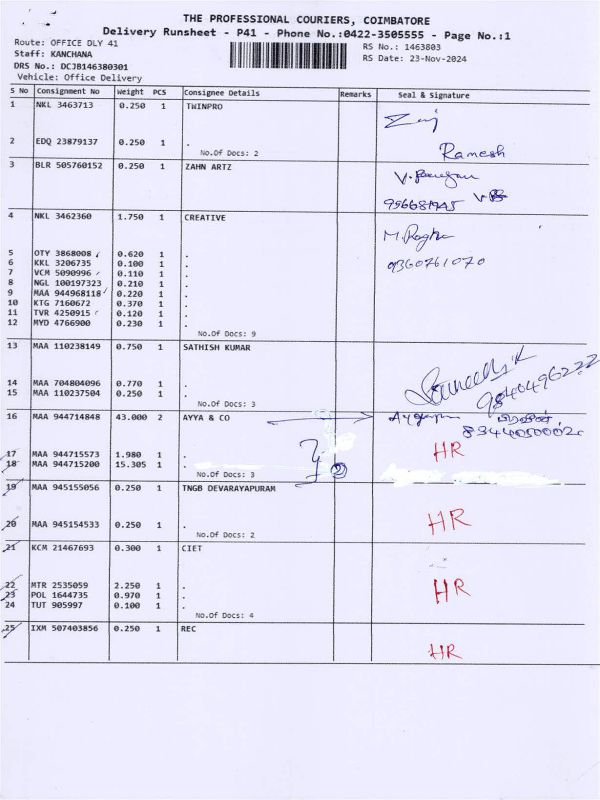 THE PROFESSIONAL COURIERS, COIMBATORE
Delivery Runsheet - P41 - Phone No.:0422-3505555 - Page No.:1
Route: OFFICE DLY 41
Staff: KANCHANA
DRS No.: DCJB146380301
Vehicle: Office Delivery
RS No.: 1463803
RS Date: 23-Nov-2024
S No Consignment No Weight PCS Consignee Details Remarks Seal & Signature
1 NKL 3463713 0.250 1 TWINPRO
2 EDQ 23879137 0.250 1 .
Ramesh
No.Of Docs: 2
3 BLR 505760152 0.250 1 ZAHN ARTZ
4 NKL 3462360 1.750 1 CREATIVE
M.
9360761070
5 OTY 3868008 0.620 1 .
6 KKL 3206735 0.100 1 .
7 VCM 5090996 0.110 1 .
8 NGL 100197323 0.210 1 .
9 MAA 944968118 0.220 1 .
10 KTG 7160672 0.370 1 .
11 TVR 4250915 0.120 1 .
12 MYD 4766900 0.230 1 .
No.Of Docs: 9
13 MAA 110238149 0.750 1 SATHISH KUMAR
9840496222
14 MAA 704804096 0.770 1 .
15 MAA 110237504 0.250 1 .
No.Of Docs: 3
16 MAA 944714848 43.000 2 AYYA & CO
17 MAA 944715573 1.980 1 . HR
18 MAA 944715200 15.305 1 .
No.Of Docs: 3
19 MAA 945155056 0.250 1 TNGB DEVARAYAPURAM
20 MAA 945154533 0.250 1 . HR
No.Of Docs: 2
21 KCM 21467693 0.300 1 CIET
22 MTR 2535059 2.250 1 . HR
23 POL 1644735 0.970 1 .
24 TUT 905997 0.100 1 .
No.Of Docs: 4
25 IXM 507403856 0.250 1 REC
HR